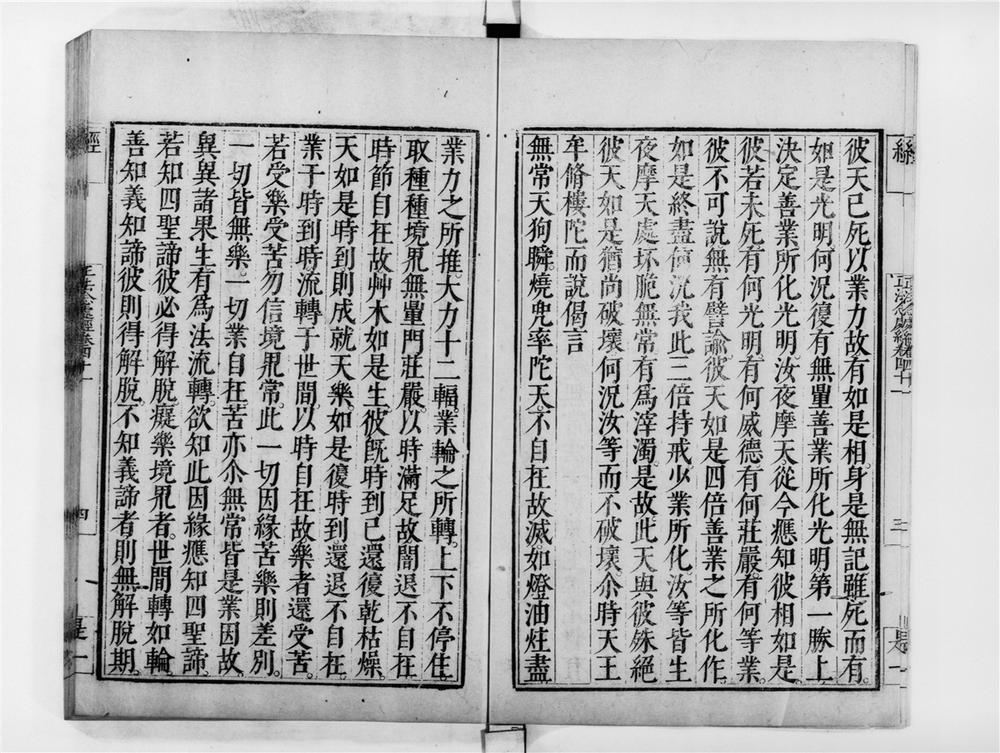 彼天已死以業力故有如是相身是無記雖死而有
如是光明何況復有無量善業所化光明第一勝上
決定善業所化光明汝夜摩天從今應知彼相如是
彼若未死有何光明有何威德有何莊嚴有何等業
彼不可說無有譬諭彼天如是四倍善業之所化作
如是終盡何況我此三倍持戒少業所化汝等皆生
夜摩天處坏脆無常有為滓濁是故此天與彼殊絕
彼天如是猶尚破壞何況汝等而不破壞尒時天王
牟脩樓陀而說偈言
無常大狗瞬燒兜率陀天不自在故滅如燈油炷盡
業力之所推大力十二輻業輪之所轉上下不停住
取種種境界無量門莊嚴以時滿足故闇退不自在
時節自在故艸木如是生彼既時到已還復乾枯燥
天如是時到則成就天樂如是復時到還退不自在
業于時到時流轉于世間以時自在故樂者還受苦
若受樂受苦勿信境界常此一切因緣苦樂則差別
一切皆無樂一切業自在苦亦尒無常皆是業因故
異異諸果生有為法流轉欲知此因緣應知四聖諦
若知四聖諦彼必得解脫癡樂境界者世間轉如輪
善知義知諦彼則得解脫不知義諦者則無解脫期
經
四